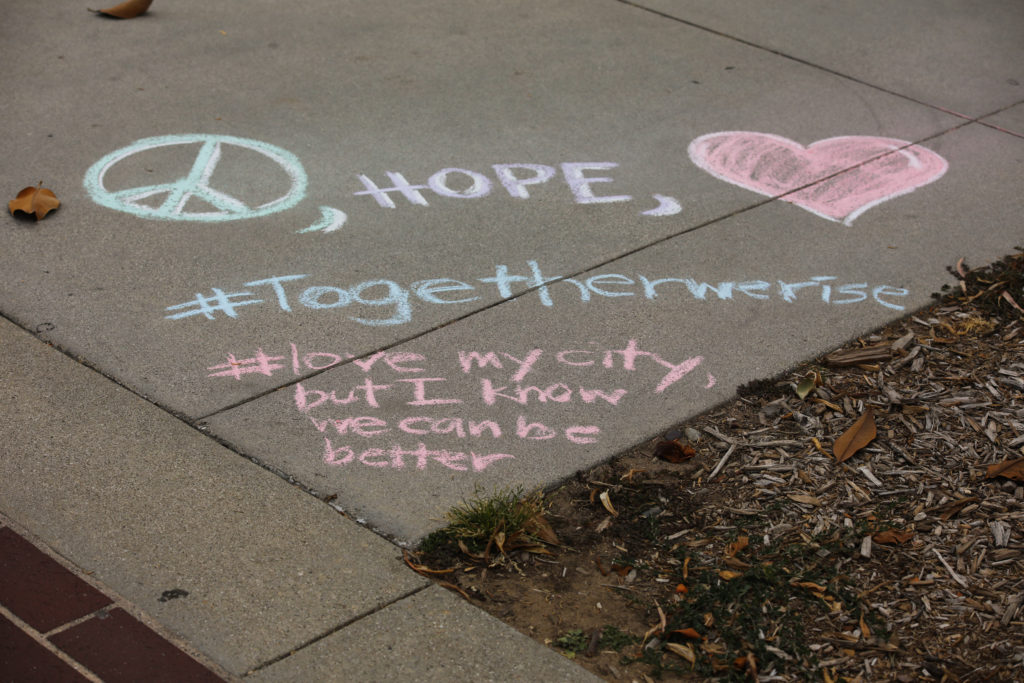 , HOPE,
#Togetherwerise
#love my city,
but I know
we can be
better